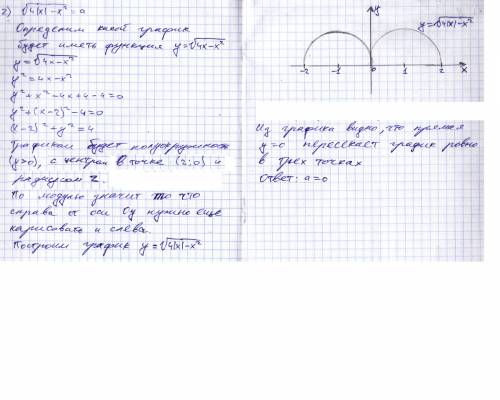 2) √4|x|-x² = a
Определим какой график
будет иметь функция y=√4x-x²
y=√4x-x²
y²=4x-x²
y²+x²-4x+4-4=0
y²+(x-2)²-4=0
(x-2)²+y²=4
Графиком будет полуокружность
(y>0), с центром в точке (2;0) и
радиусом 2.
По модулю значит то что
справа от оси Oy нужно ещё
нарисовать и слева.
Построим график y=√4|x|-x²
y
y=√4|x|-x²
-2 -1 0 1 2 x
Из графика видно, что прямая
y=0 пересекает график ровно
в трёх точках
Ответ: a=0